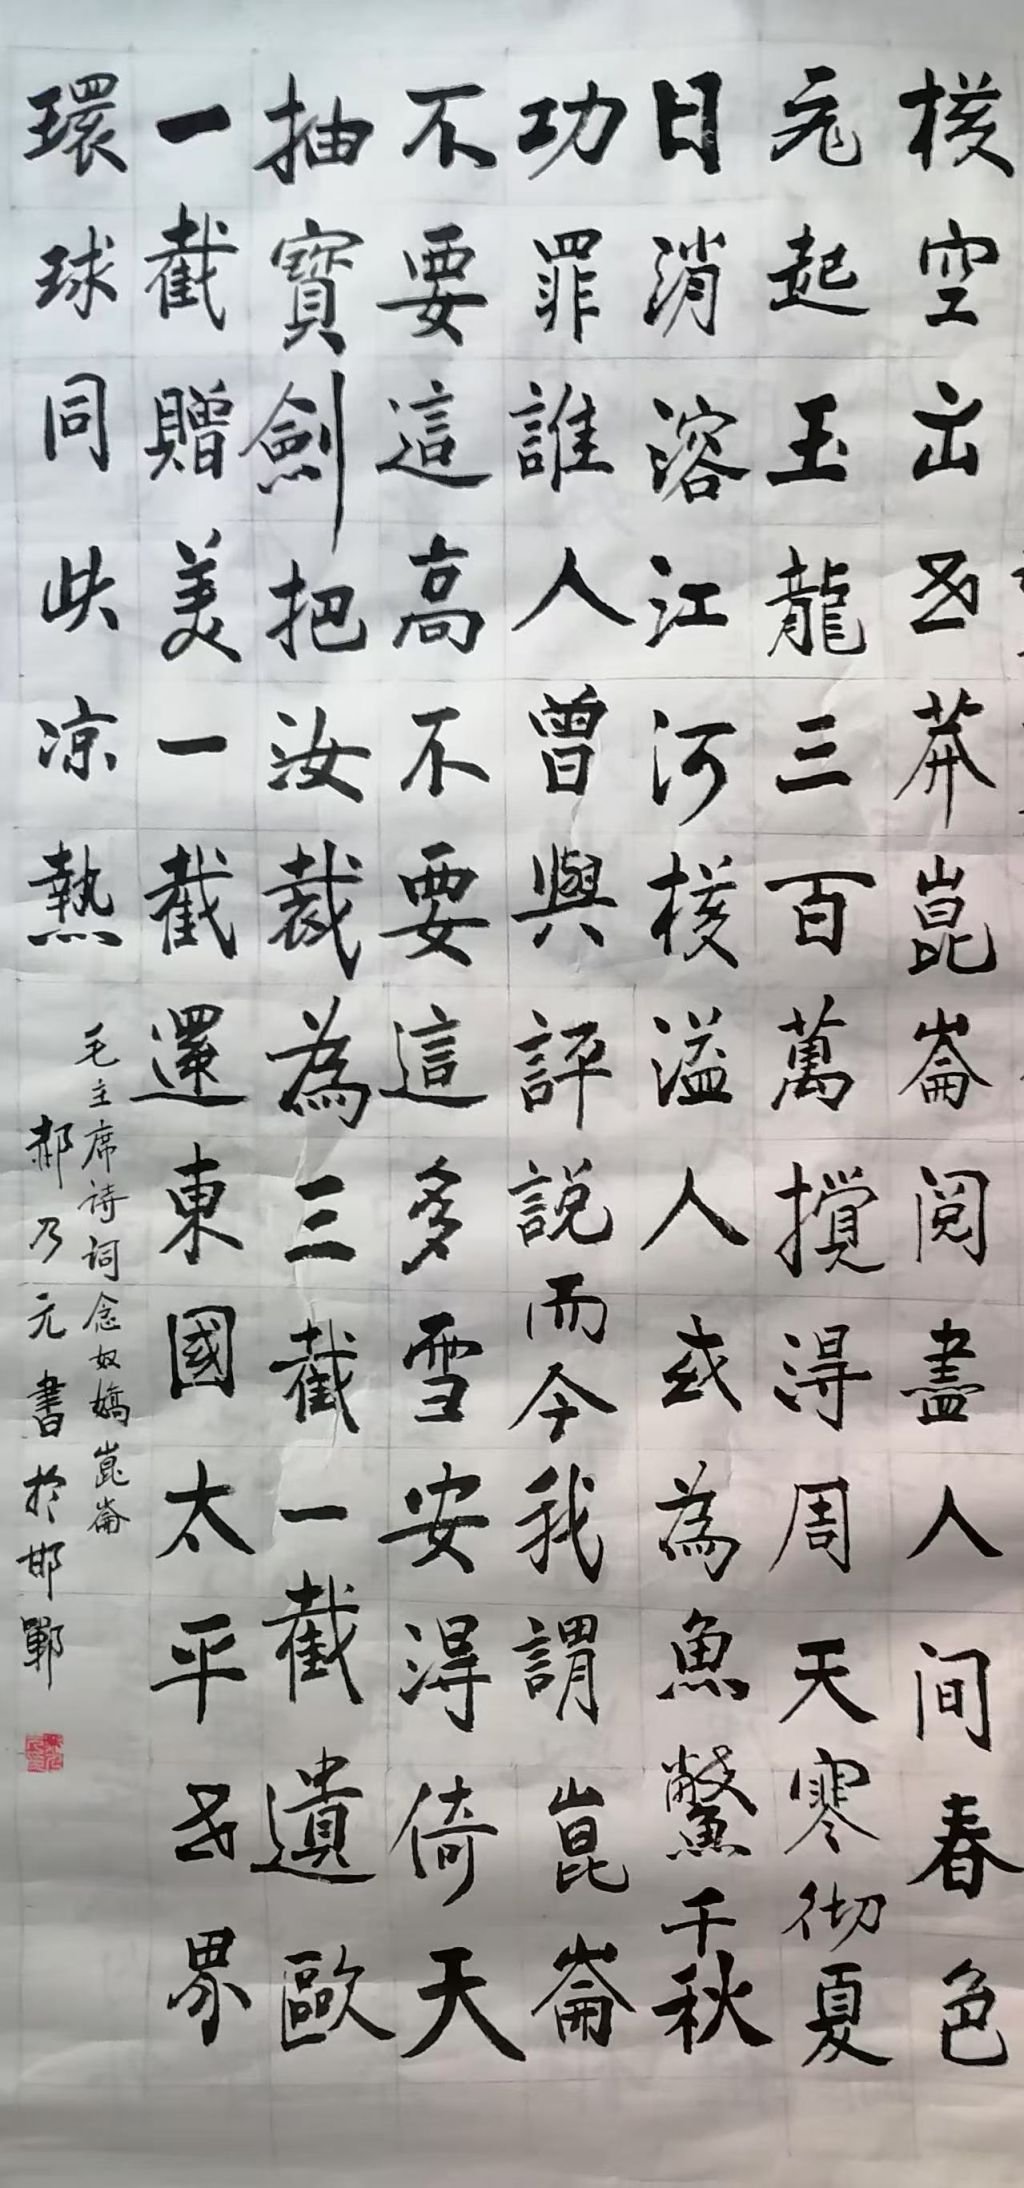 横空出世莽崑崙閱盡人间春色
飛起玉龍三百萬攪得周天寒彻夏
日消溶江河横溢人或為魚鱉千秋
功罪誰人曾與評説而今我謂崑崙
不要這高不要這多雪安得倚天
抽寶劍把汝裁為三截一截遺歐
一截贈美一截還東國太平世界
環球同此凉熱
毛主席诗词念奴嬌崑崙
郝乃元書於邯鄲